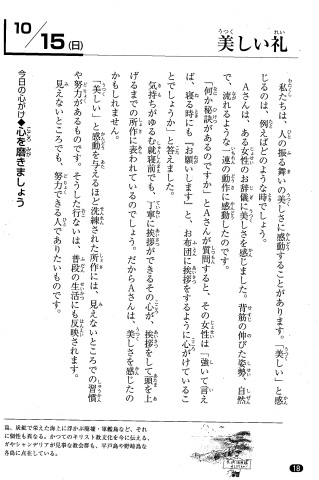 10/15(日)
美しい礼
私たちは、人の振る舞いの美しさに感動することがあります。「美しい」と感
じるのは、例えばどのような時でしょう。
Aさんは、ある女性のお辞儀に美しさを感じました。背筋の伸びた姿勢、自然
で、流れるような一連の動作に感動したのです。
「何か秘訣があるのですか」とAさんが質問すると、その女性は「強いて言え
ば、寝る時にも『お願いします』と、お布団に挨拶をするように心がけているこ
とでしょうか」と答えました。
気持ちがゆるむ就寝前でも、丁寧に挨拶ができるその心が、挨拶をして頭を上
げるまでの所作に表われているのでしょう。だからAさんは、美しさを感じたの
かもしれません。
「美しい」と感動を与えるほど洗練された所作には、見えないところでの習慣
や努力があるものです。そうした行ないは、普段の生活にも反映されます。
見えないところでも、努力できる人でありたいものです。
今日の心がけ◆心を磨きましょう
島、炭鉱で栄えた海上に浮かぶ廃墟・軍艦島など、それぞれ
に個性も異なる。かつてのキリスト教文化を今に伝える、
ガヤシャンデリアが見事な教会群も、平戸島や野崎島な
各島に点在している。
18